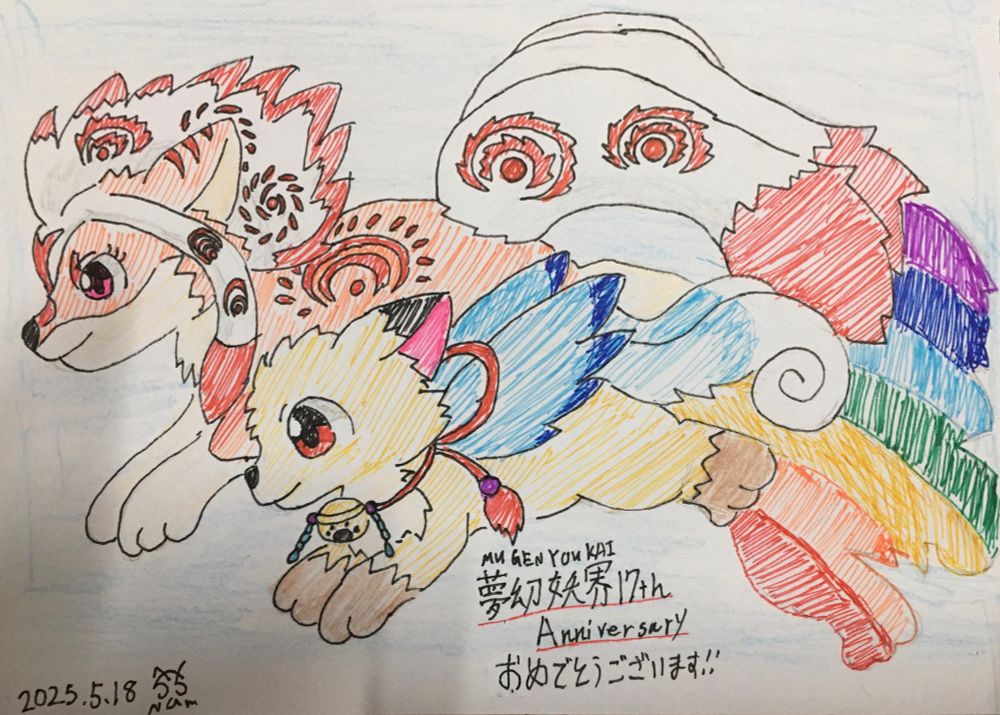 MUGENYOUKAI
夢幻妖界17th
Anniversary
おめでとうございます!!
2025.5.18
Nam